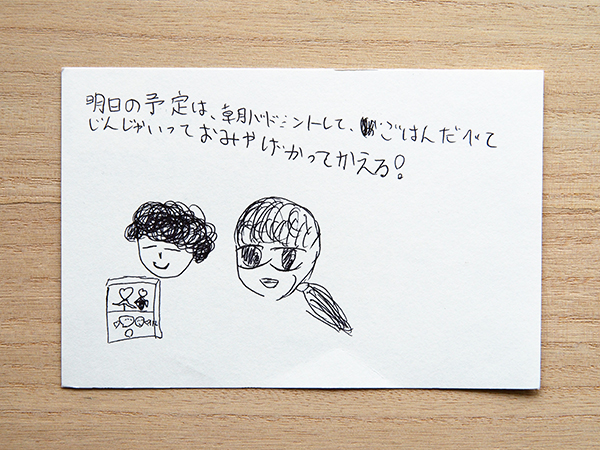 明日の予定は、朝バドミントして、ごはんだべて
じんじゃいっておみやげかってかえる!